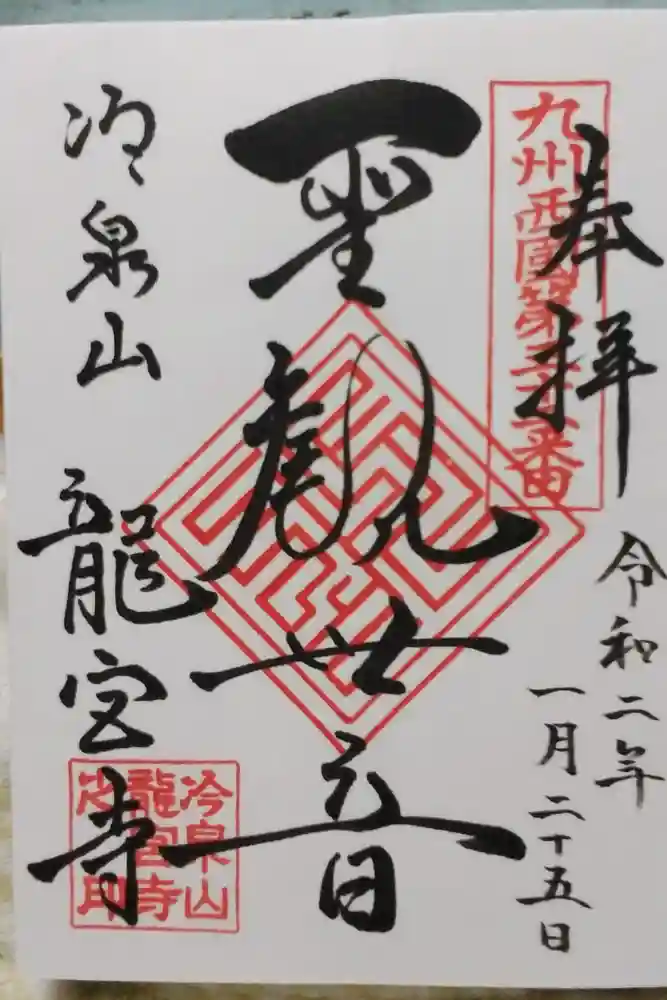 奉拝
九州西国第三十二番
令和二年
一月二十五日
聖観世音
冷泉山
龍宮寺
冷泉山
龍宮寺